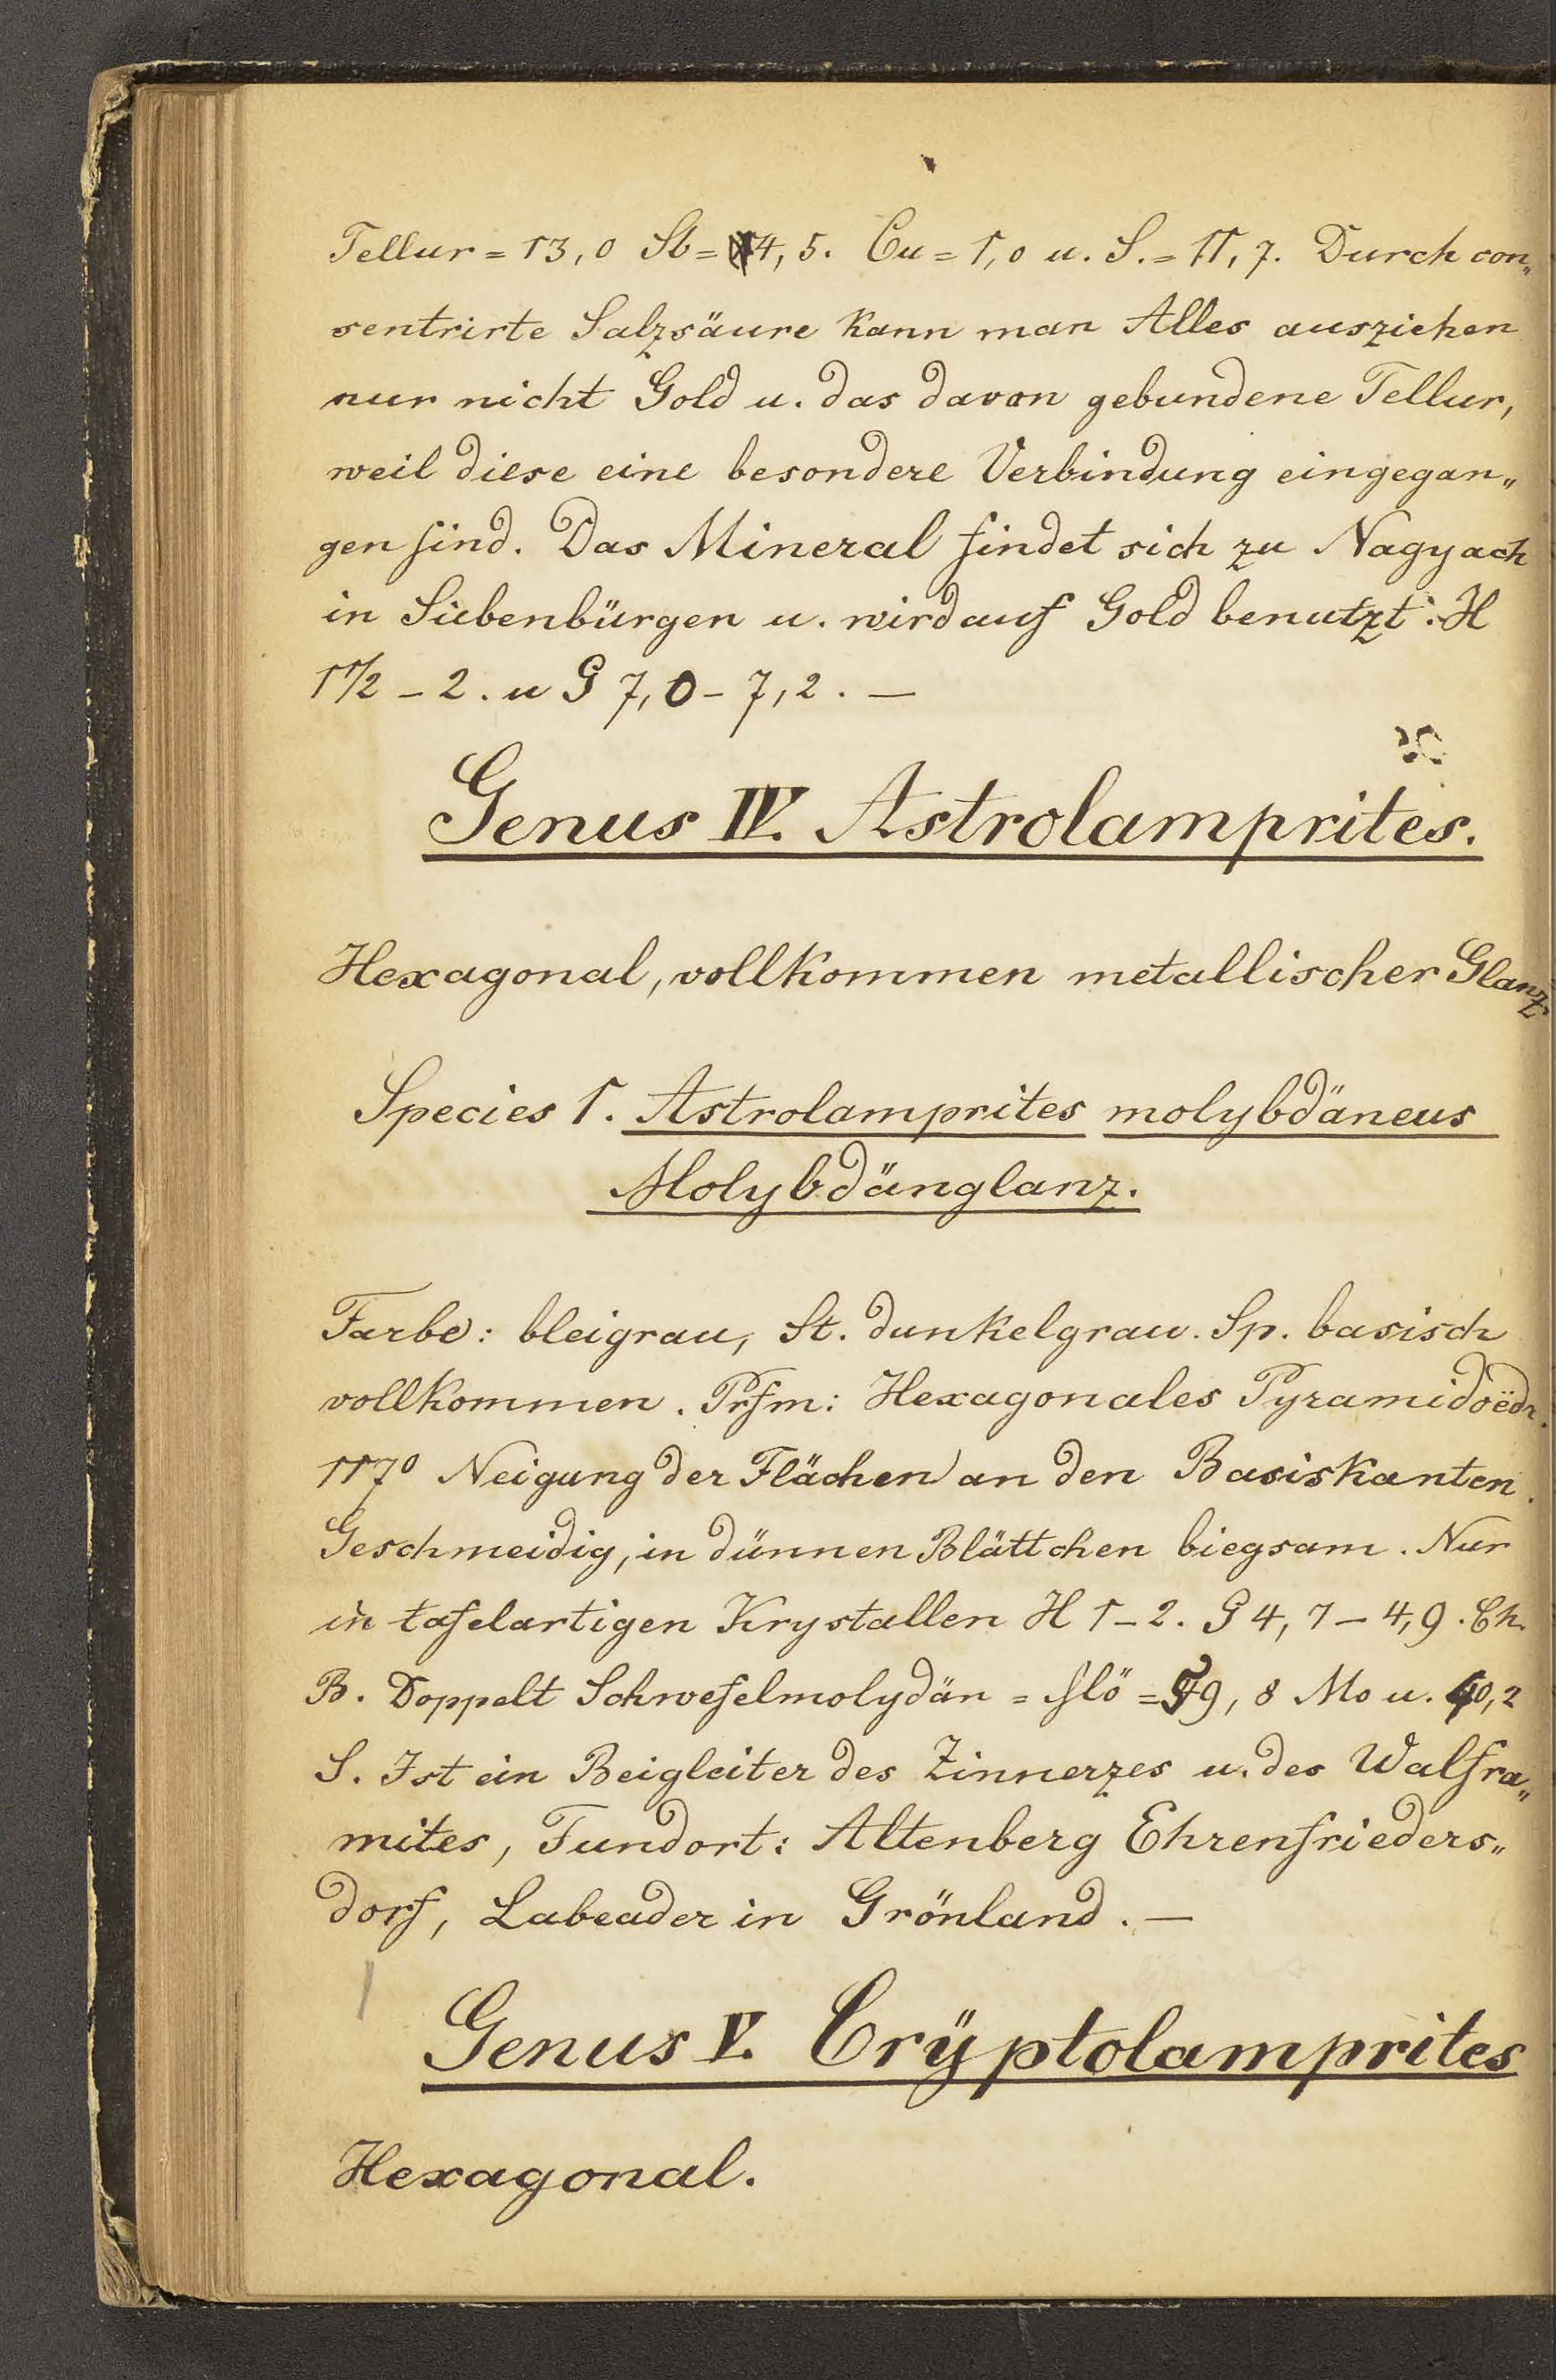 Tellur = 13,0 Sb = 4,5. Cu = 1,0 u. S. = 11,7. Durch con„
sentrirte Salzsäure kann man Alles ausziehen
nur nicht Gold u. das davon gebundene Tellur,
weil diese eine besondere Verbindung eingegan„
gen sind. Das Mineral findet sich zu Nagyach
in Siebenbürgen u. wird auf Gold benutzt. H
1 1/2 – 2. u G 7,0 – 7,2. —
Genus IV. Astrolamprites.
Hexagonal, vollkommen metallischer Glanz
Species 1. Astrolamprites molybdäneus
Molybdänglanz.
Farbe: bleigrau, St. dunkelgrau. Sp. basisch
vollkommen. Prfm: Hexagonales Pyramidoëdr.
117° Neigung der Flächen an den Basiskanten.
Geschmeidig, in dünnen Blättchen biegsam. Nur
in tafelartigen Krystallen H 1 – 2. G 4,7 – 4,9. Ch.
B. Doppelt Schwefelmolydän = = 59,8 Mo u. 40,2
S. Ist ein Beigleiter des Zinnerzes u. des Walfra„
mites, Fundort: Altenberg Ehrenfrieders„
dorf, Labeader in Grönland. —
Genus V. Crÿptolamprites
Hexagonal.